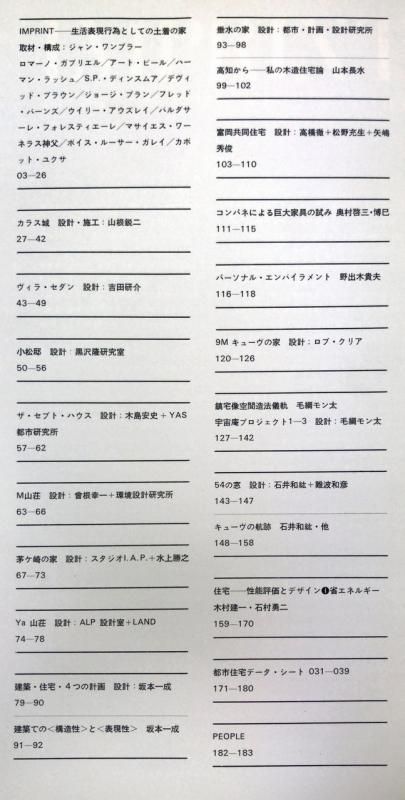 IMPRINT──生活表現行為としての土着の家
取材・構成：ジャン・ワンプラー
ロマーノ・ガブリエル／アート・ビール／ハー
マン・ラッシュ／S.P.ディンスムア／デヴィ
ッド・ブラウン／ジョージ・プラン／フレッド
・バーンズ／ウイリー・アウズレイ／バルダサ
ーレ・フォレスティエーレ／マサイエス・ワー
ネラス神父／ボイス・ルーサー・ガレイ／カボ
ット・ユクサ
03─26
カラス城　設計・施工：山根鋭二
27─42
ヴィラ・セダン　設計：吉田研介
43─49
小松邸　設計：黒沢隆研究室
50─56
ザ・セプト・ハウス　設計：木島安史＋YAS
都市研究所
57─62
M山荘　設計：曾根幸一＋環境設計研究所
63─66
茅ケ崎の家　設計：スタジオI.A.P.＋水上勝之
67─73
Ya 山荘　設計：ALP 設計室＋LAND
74─78
建築・住宅・４つの計画　設計：坂本一成
79─90
建築での＜構造性＞と＜表現性＞　坂本一成
91─92
垂水の家　設計：都市・計画・設計研究所
93─98
高知から──私の木造住宅論　山本長水
99─102
富岡共同住宅　設計：高橋徹＋松野充生＋矢嶋
秀俊
103─110
コンパネによる巨大家具の試み　奥村啓三・博巳
111─115
パーソナル・エンバイラメント　野出木貴夫
116─118
9M キューヴの家　設計：ロブ・クリア
120─126
鎮宅像空間造法儀軌　毛綱モン太
宇宙庵プロジェクト1─3　設計：毛綱モン太
127─142
54の窓　設計：石井和紘＋難波和彦
143─147
キューヴの航跡　石井和紘・他
148─158
住宅──性能評価とデザイン❶省エネルギー
木村建一・石村勇二
159─170
都市住宅データ・シート 031─039
171─180
PEOPLE
182─183